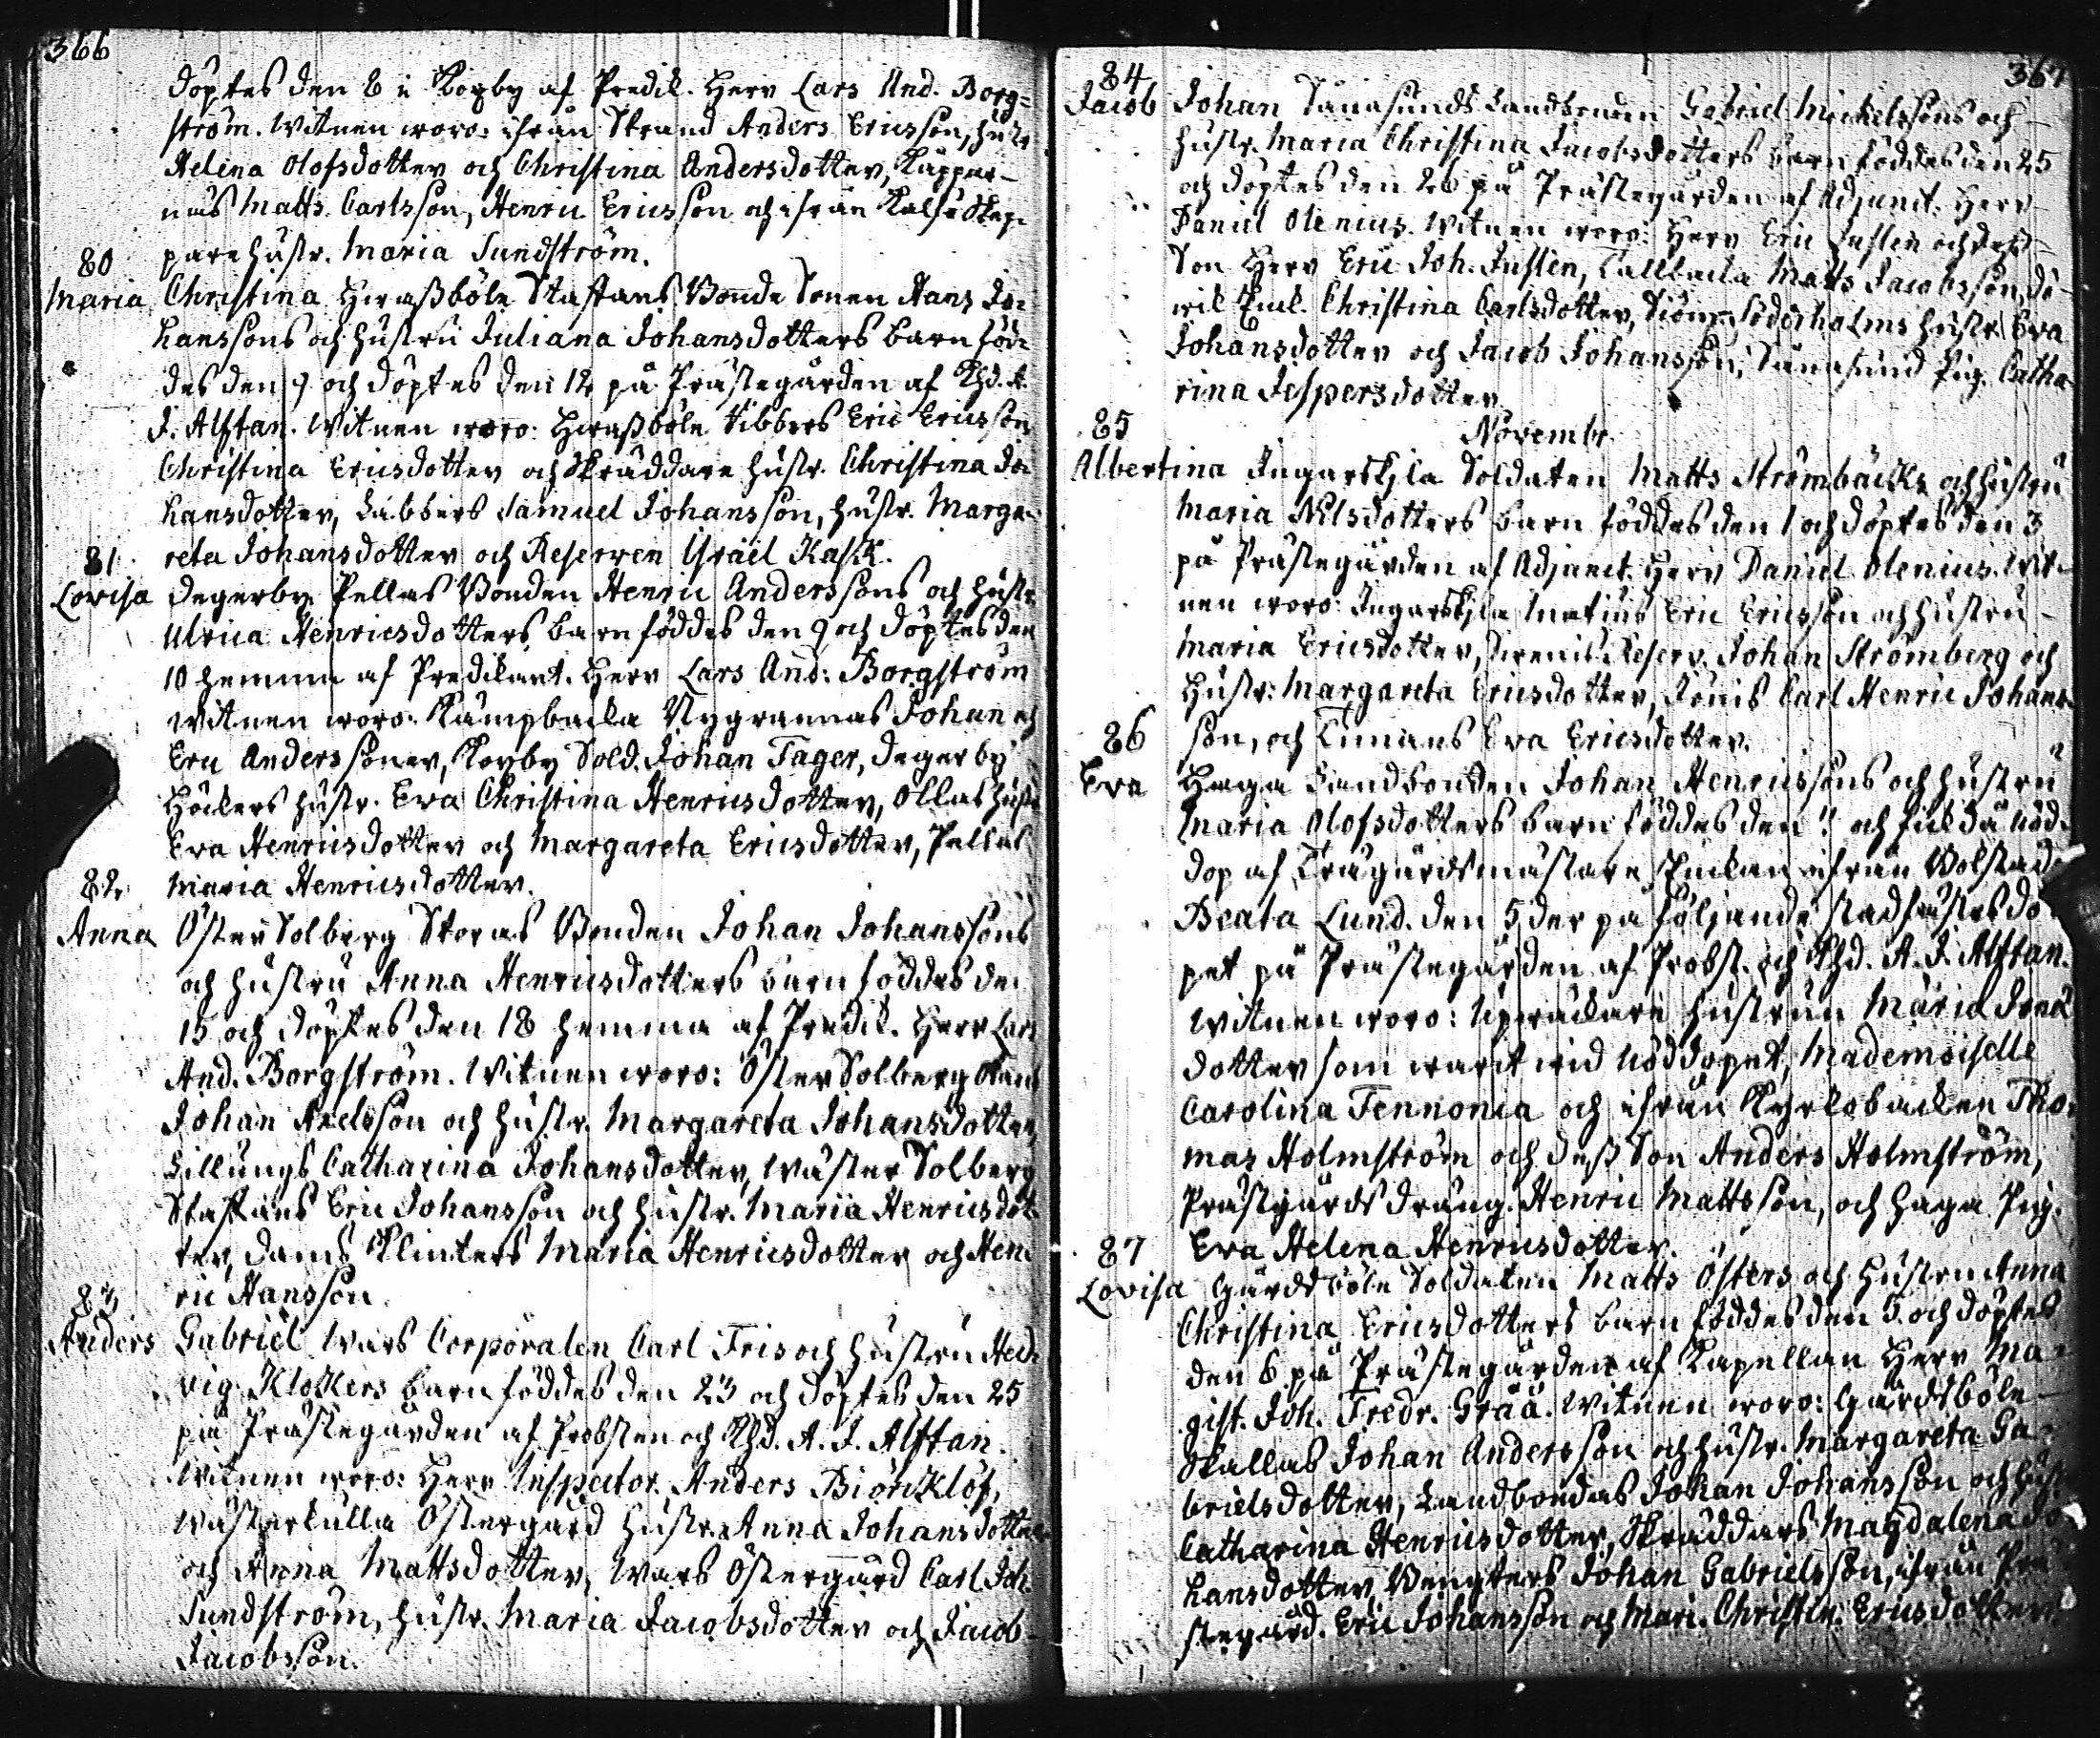 366
döptes den 8 i Kopby af Predik. Herr Lars And. Borg=
ström. Witnen woro: ifrån Strand Anders Ericsson, hustr
Helena Olofsdotter och Christina Andersdotter, Kappar-
näs Matts Carlsson, Henric Ericsson och ifrån Skep-
pare hustr. Maria Sundström.
80
Maria Christina Stafans Bonde Sonen Hans Jo-
hanssons och hustru Juliana Johansdotters barn föd-
des den 9 och döptes den 12 på Prästegården af Khd. A.
J. Alftan. Witnen woro: Tibbers Eric Ericsson
Christina Ericsdotter och Skräddare hustr. Christina Jo-
hansdotter, Labbers Samuel Johansson, hustr. Marga-
reta Johansdotter och Reserven Israel Kask.
81
Lovisa Degerby Pellas Bonden Henric Anderssons och hustr
Ulrica Henricsdotters barn föddes den 9 och döptes den
10 hemma af Predikant. Herr Lars And: Borgström
Witnen woro: Kämpbacka Nygrannas Johan och
Eric Anderssöner, Kopby Sold. Johan Tager, Degerby
Höckers hustr. Eva Christina Henricsdotter, Ollas hustr
Eva Henricsdotter och Margareta Ericsdotter, Pellas
Maria Henricsdotter.
82
Anna Öster Solberg Storas Bonden Johan Johanssons
och hustru Anna Henricsdotters barn föddes den
15 och döptes den 18 hemma af Predik. Herr Lars
And. Borgström. Witnen woro: Öster Solberg
Johan Axelsson och hustr. Margareta Johansdotter,
Lillungs Catharina Johansdotter, Wäster Solberg
Stafans Eric Johansson och hustr. Maria Henricsdot-
ter, Klinters Maria Henricsdotter och Hen-
ric Hansson
83
Anders Gabriel Wars Corporalen Carl Fris och hustru Hed-
vig Klockers barn föddes den 23 och döptes den 25
på Prästegården af Probsten och Khd. A. J. Alftan.
Witnen woro: Herr Inspector Anders Biörcklöf,
Wästerkulla Östergård hustr. Anna Johansdotter
och Anna Mattsdotter, Wars Östergård Carl Joh.
Sundström, hustr. Maria Jacobsdotter och Jacob
Jacobsson.
367
84
Jacob Johan Sanasunds Landbonden Gabriel Mickelssons och
hustr. Maria Christina Jacobsdotters barn föddes den 25
och döptes den 26 på Prästegården af Adjunct. Herr
Daniel Olenius. Witnen woro: Herr Eric Juslen och dess
Son Herr Eric Joh. Juslen, Tallbacka Matts Jacobsson,
Christina Carlsdotter, Söderholms hustr. Eva
Johansdotter och Jacob Johansson, Sanasund Pig. Catha-
rina Jespersdotter
85
Novembr.
Albertina Ingarskila Soldaten Matts Strömbäcks och hustru
Maria Nilsdotters barn föddes den 1 och döptes den 3
på Prästegården af Adjunct. Herr Daniel Olenius. Wit-
nen woro: Ingarskila Eric Ericsson och hustru
Maria Ericsdotter, Reserv. Johan Strömberg och
hustr: Margareta Ericsdotter, Carl Henric Johans-
son, och Eva Ericsdotter.
86
Eva Haga Landbonden Johan Henricssons och hustru
Maria Olofsdotters barn föddes den och fick då nöd-
dop af Trägårdsmästare Enckan ifrån Bolstad
Beata Lund. den 5 der på följande stadfästes do
pet på Prästegården af Probst. och Khd. A. J. Alftan.
Witnen woro: hustrun Maria
dotter som warit wid nöddopet, Mademoiselle
Carolina Fennonia och ifrån Kyrkobacken Tho-
mas Holmström och dess Son Anders Holmström,
Prästgårds dräng. Henric Mattsson, och Haga Pig.
Eva Helena Henricsdotter.
87
Lovisa Gårdsböle Soldaten Matts Östers och hustru Anna
Christina Ericsdotters barn föddes den 5. och döptes
den 6 på Prästegården af Kapellan Herr Ma-
gist. Joh. Fredr. Gråå. Witnen woro: Gårdsböle
Skallas Johan Andersson och hustr. Margareta Ga-
brielsdotter, Landbondas Johan Johansson och hustr
Catharina Henricsdotter, Skräddars Magdalena Jo
hansdotter, Johan Gabrielsson, ifrån Prä
stegård. Eric Johansson och Mari. Christin. Ericsdotter